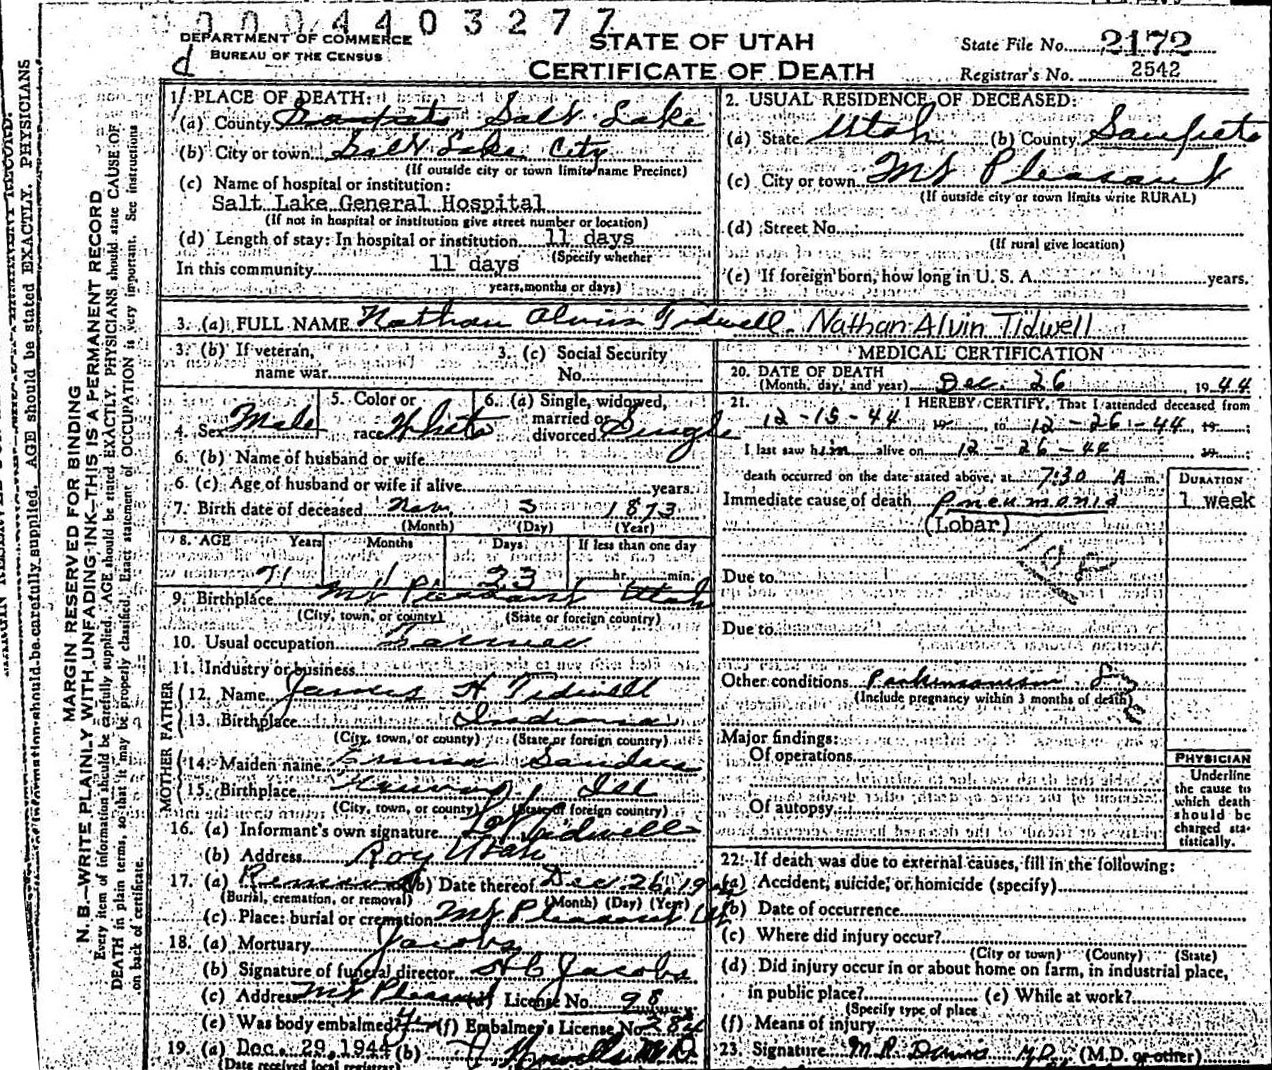 0004403277
DEPARTMENT OF COMMERCE
BUREAU OF THE CENSUS
d
STATE OF UTAH
CERTIFICATE OF DEATH
State File No. 2172
Registrar's No. 2542
MARGIN RESERVED FOR BINDING
N. B.—WRITE PLAINLY WITH UNFADING INK—THIS IS A PERMANENT RECORD
Every item of information should be carefully supplied. AGE should be stated EXACTLY. PHYSICIANS should state CAUSE OF
DEATH in plain terms, so that it may be properly classified. Exact statement of OCCUPATION is very important. See instructions
on back of certificate.
1. PLACE OF DEATH:
(a) County Sanpete Salt Lake
(b) City or town Salt Lake City
(If outside city or town limits name Precinct)
(c) Name of hospital or institution:
Salt Lake General Hospital
(If not in hospital or institution give street number or location)
(d) Length of stay: In hospital or institution 11 days
(Specify whether
In this community 11 days
years, months or days)
2. USUAL RESIDENCE OF DECEASED:
(a) State Utah (b) County Sanpete
(c) City or town Mt Pleasant
(If outside city or town limits write RURAL)
(d) Street No.
(If rural give location)
(e) If foreign born, how long in U. S. A. years.
3. (a) FULL NAME Nathan Alvin Tidwell. Nathan Alvin Tidwell
3. (b) If veteran,
name war
3. (c) Social Security
No.
4. Sex Male
5. Color or
race White
6. (a) Single, widowed,
married or
divorced Single
6. (b) Name of husband or wife
6. (c) Age of husband or wife if alive years.
7. Birth date of deceased Nov. 3 1873
(Month) (Day) (Year)
8. AGE Years Months Days If less than one day
71 1 23 hr. min.
9. Birthplace Mt Pleasant Utah
(City, town, or county) (State or foreign country)
10. Usual occupation Farmer
11. Industry or business
FATHER
12. Name James H Tidwell
13. Birthplace Indiana
(City, town, or county) (State or foreign country)
MOTHER
14. Maiden name Emma Sanders
15. Birthplace Ill
(City, town, or county) (State or foreign country)
16. (a) Informant's own signature Tidwell
(b) Address Roy Utah
17. (a) Removal (b) Date thereof Dec 26, 1944
(Burial, cremation, or removal) (Month) (Day) (Year)
(c) Place: burial or cremation Mt Pleasant Ut
18. (a) Mortuary Jacobs
(b) Signature of funeral director H C Jacobs
(c) Address Mt Pleasant (d) License No. 98
(e) Was body embalmed? Yes (f) Embalmer's License No. 284
19. (a) Dec. 29, 1944 (b) M D
(Date received local registrar)
MEDICAL CERTIFICATION
20. DATE OF DEATH
(Month, day, and year) Dec. 26 1944
21. I HEREBY CERTIFY, That I attended deceased from
12-15-44 19 to 12-26-44, 19 ;
I last saw him alive on 12-26-44 19 ;
death occurred on the date stated above, at 7:30 A. m.
DURATION
Immediate cause of death Pneumonia 1 week
(Lobar)
108
Due to
Due to
Other conditions Parkinsonism
(Include pregnancy within 3 months of death)
Major findings:
Of operations
Of autopsy
PHYSICIAN
Underline
the cause to
which death
should be
charged sta-
tistically.
22. If death was due to external causes, fill in the following:
(a) Accident, suicide, or homicide (specify)
(b) Date of occurrence
(c) Where did injury occur?
(City or town) (County) (State)
(d) Did injury occur in or about home on farm, in industrial place,
in public place? (e) While at work?
(Specify type of place
(f) Means of injury
23. Signature M.R. MD. (M.D. or other)